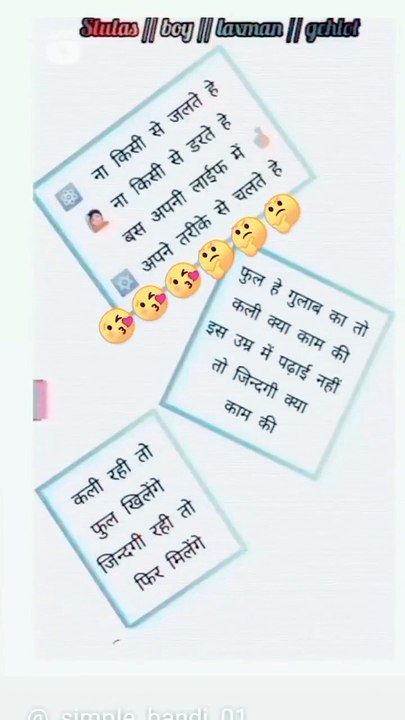 Stutas || boy || laxman || gehlot
ना किसी से जलते हे
ना किसी से डरते हे
बस अपनी लाईफ में
अपने तरीके से चलते हे
फुल हे गुलाब का तो
कली क्या काम की
इस उम्र में पढ़ाई नहीं
तो जिन्दगी क्या
काम की
कली रही तो
फुल खिलेंगे
जिन्दगी रही तो
फिर मिलेंगे
@_simple_bandi_01